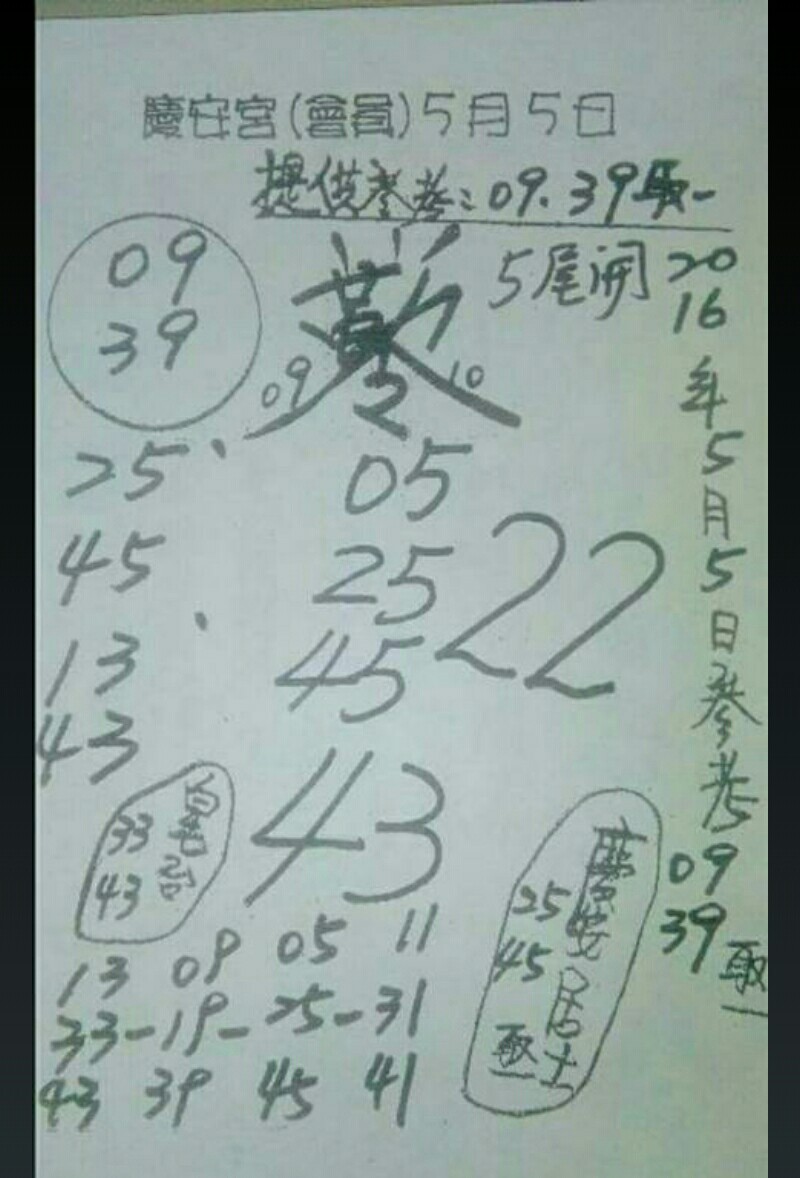 慶安宮(會員)5月5日
提供參考:09.39取一
5尾開
09
39
09 10
25、
45
13、
43
05
25
45
22
43
2016年5月5日參考09 39取一
33
43
慶安居士
25
45
取一
13 09 05 11
33-19-25-31
43 39 45 41